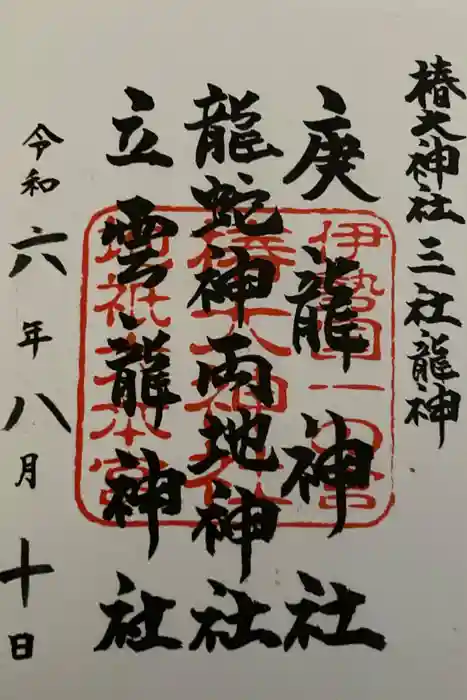 椿大神社三社龍神
庚龍神社
龍蛇神両地神社
立雲龍神社
令和六年八月十日
伊勢国一之宮
椿大神社
地祇大本宮